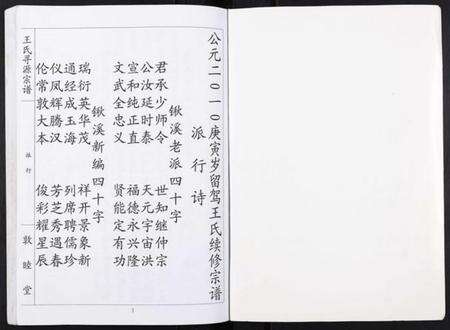 公元二0一0庚寅岁留驾王氏续修宗谱
派行诗
锹溪老派四十字
君承少师令 世知继仲宗
公汝延时泰 天元宇宙洪
宣和纯正直 福德永兴隆
文武全忠义 贤能定有功
锹溪新编四十字
瑞衍英华茂 祥开景象新
通经成玉海 列席聘儒珍
仪凤辉腾汉 芳芝秀遇春
伦常敦大本 俊彩耀星辰
王氏寻源宗谱
派行
敦睦堂
1